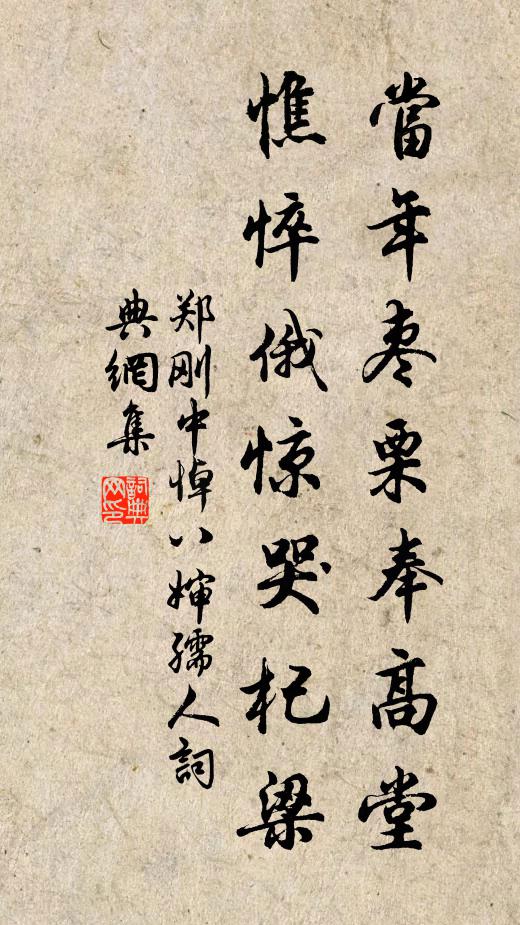 當年枣栗奉高堂
憔悴俄惊哭杞梁
郑刚中悼八婶孺人詞
典網集
詞典
网印